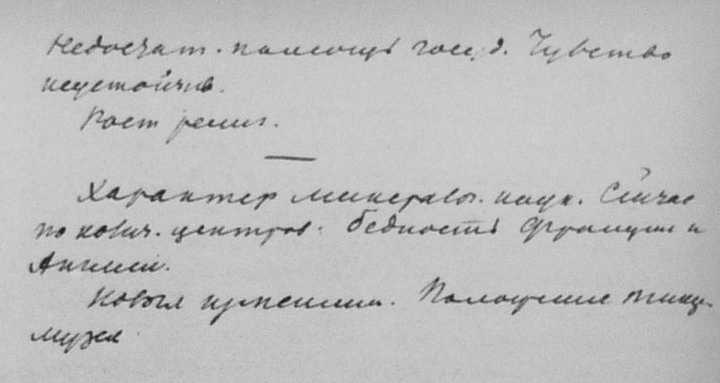 Недостат. помощь госуд. Чувство
неустойчив.
Рост религ.
Характер минералог. наук. Сейчас
по колич. центров. бедность Франции и
Англии.
Новыя Положение
Музея